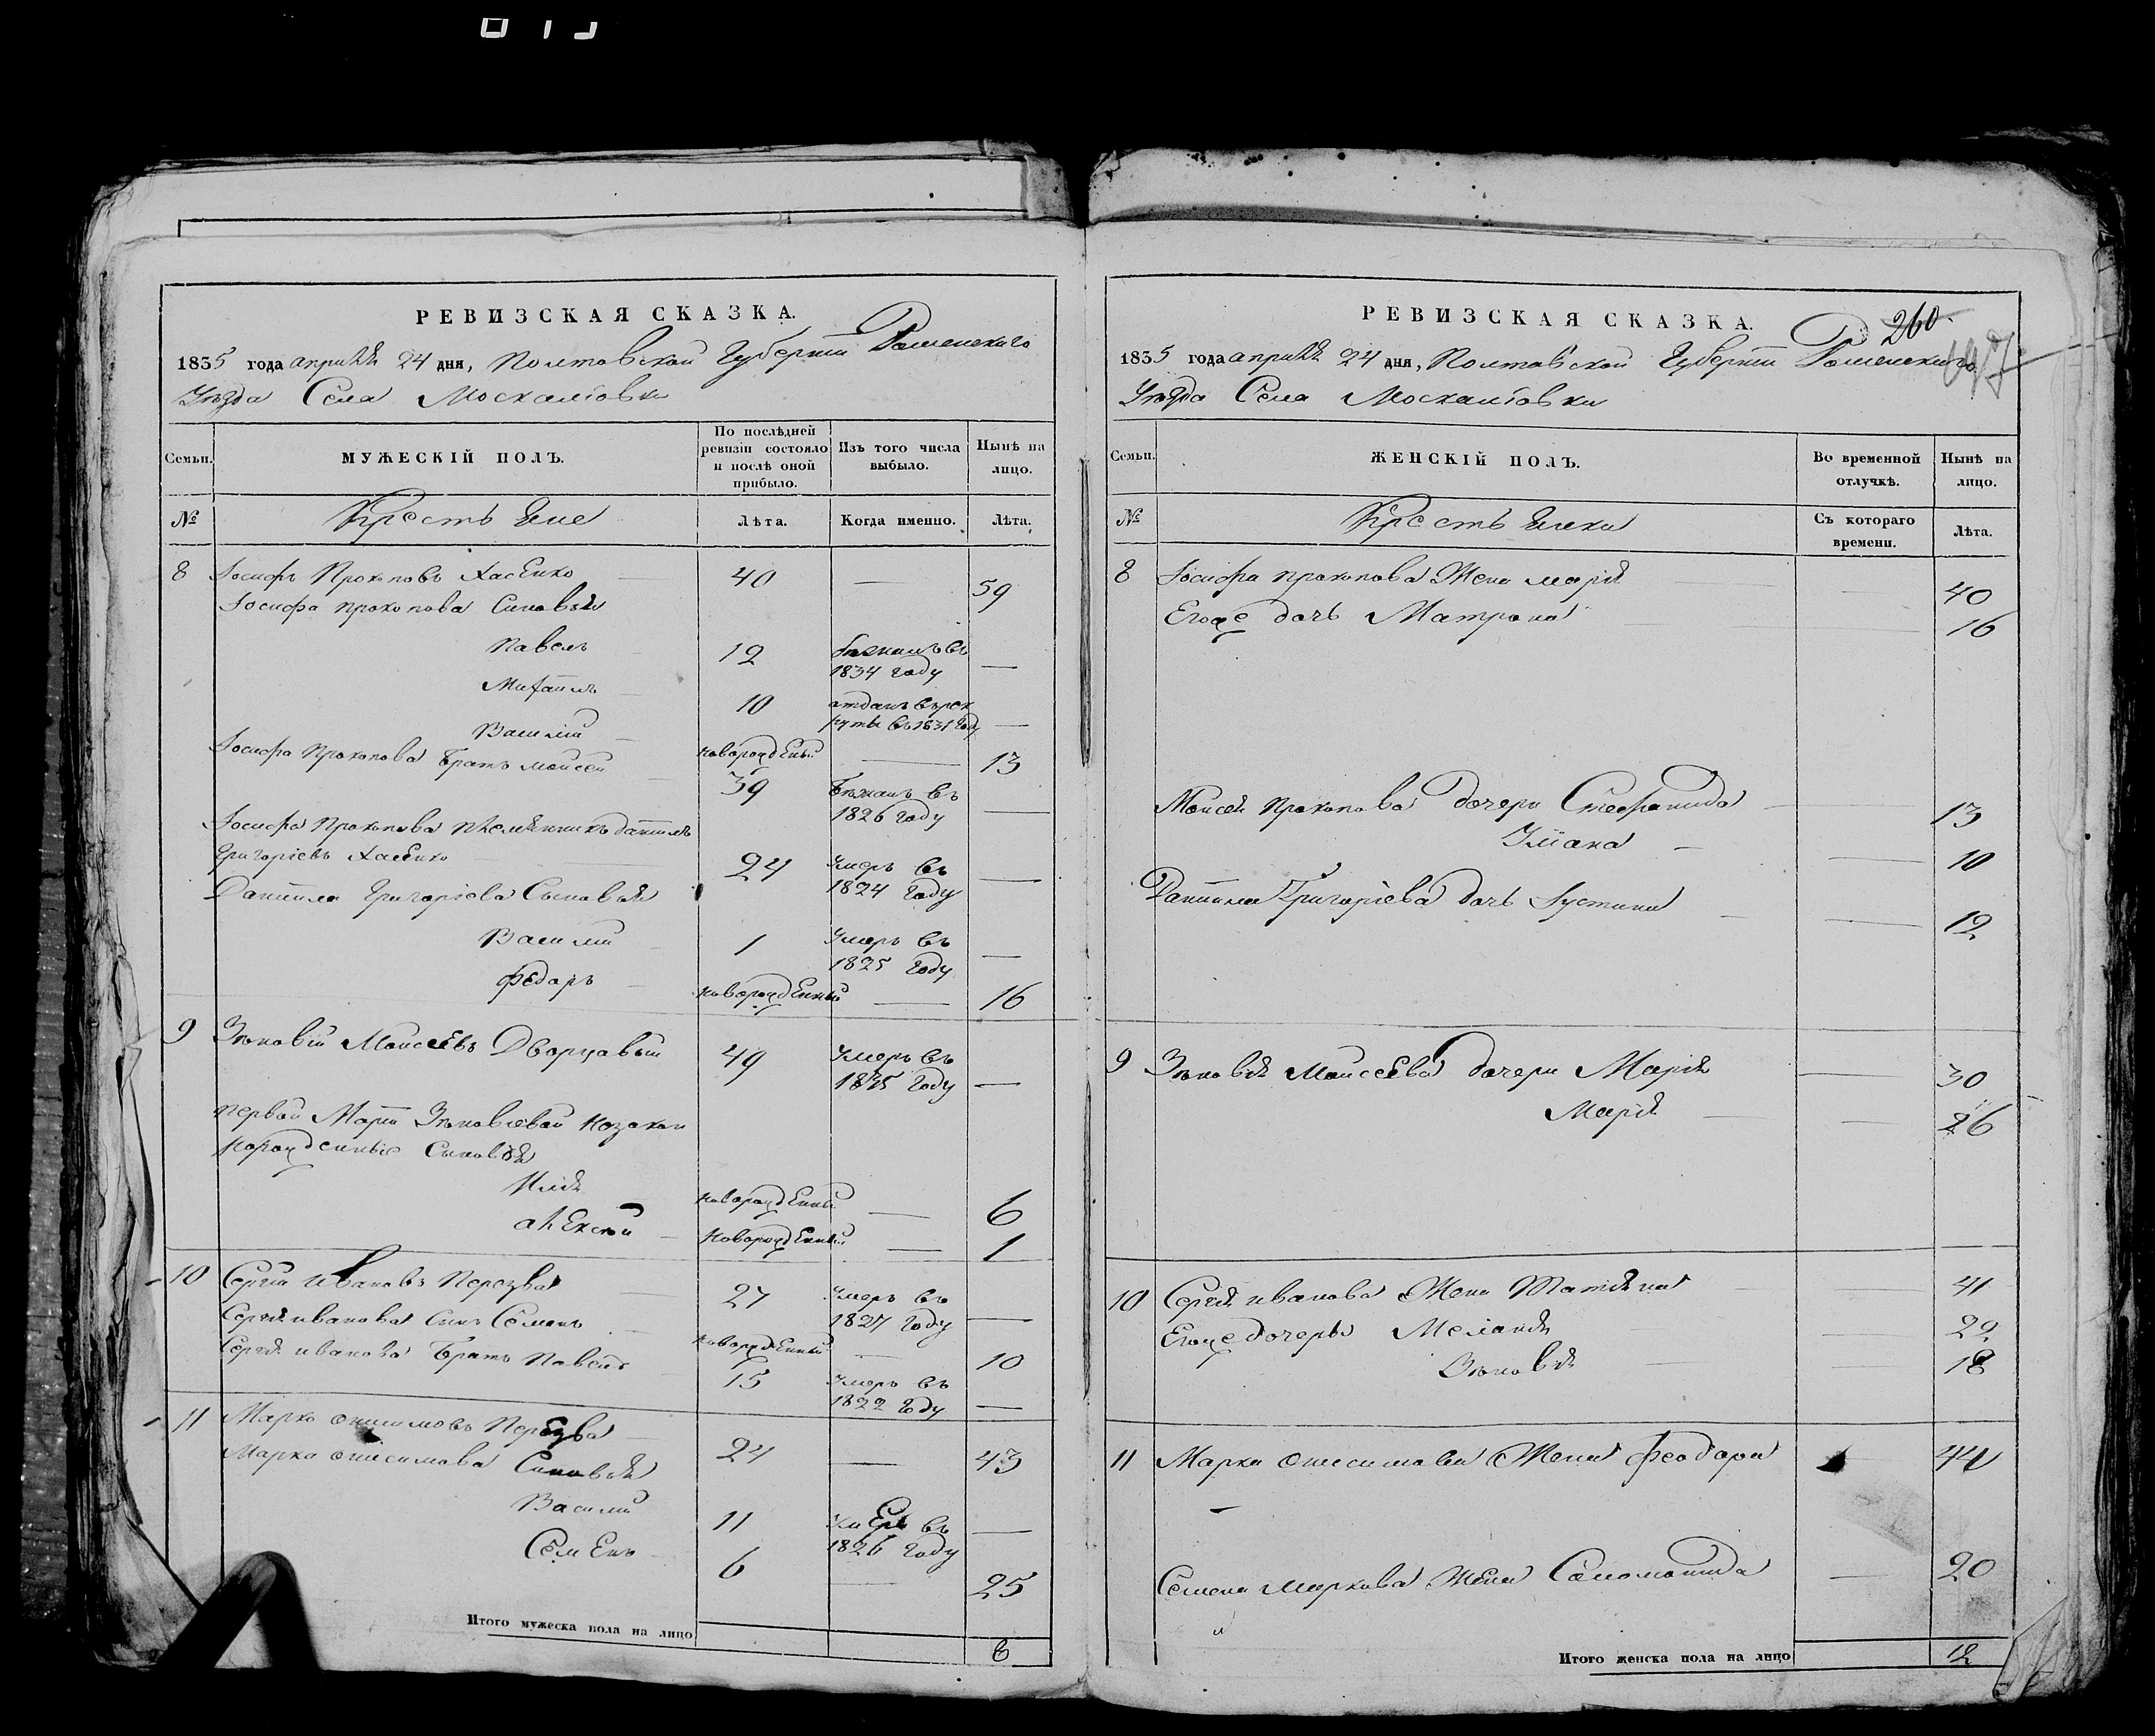 РЕВИЗСКАЯ СКАЗКА.
1835 года апреля 24 дня, Полтавской Губернии Роменского
Уезда Села Москалювки
Семьи.
МУЖЕСКІЙ ПОЛЪ.
По послѣдней ревизіи состояло и послѣ оной прибыло.
Изъ того числа выбыло.
Нынѣ на лицо.
№
Крестьяне
Лѣта.
Когда именно.
Лѣта.
8 Іосифъ Прокоповъ Хасенко 40 — 59
Іосифа Прокопова Синовья
Павелъ 12 бѣжалъ въ 1834 году —
Михаилъ 10 отданъ въ рекруты въ 1831 году —
Василий новорожденый — 13
Іосифа Прокопова Братъ Моисей 39 Бѣжалъ въ 1826 году —
Іосифа Прокопова племянникъ Даниилъ
Григоріевъ Хасенко 24 Умеръ въ 1824 году —
Даниила Григоріева Сыновья
Василий 1 Умеръ въ 1825 году —
Федоръ новорожденный — 16
9 Зѣновій Моисеевъ Дворцавый 49 Умеръ въ 1835 году —
первой Маріи Зѣновіевой
Сыновья
Илія новорожденный — 6
Алексѣй новорожденный — 1
10 Сергій Ивановъ Перезва 27 Умеръ въ 1827 году —
Сергія Иванова Синъ Семенъ новорожденный — 10
Сергія Иванова Братъ Павелъ 15 Умеръ въ 1822 году —
11 Марко Онисимовъ Перезва 24 — 43
Марка Онисимова Синовья
Василий 11 Умеръ въ 1826 году —
Семенъ 6 — 25
Итого мужеска пола на лицо 8
260.
РЕВИЗСКАЯ СКАЗКА.
1835 года апреля 24 дня, Полтавской Губернии Роменского
Уезда Села Москалювки
Семьи.
ЖЕНСКІЙ ПОЛЪ.
Во временной отлучкѣ.
Нынѣ на лицо.
№
Крестьянки
Съ котораго времени.
Лѣта.
8 Іосифа Прокопова Жена Марія — 40
Егоже дочь Матрона — 16
Моисея Прокопова дочери Стефанида 13
Уліана — 10
Даниила Григоріева дочь Іустина — 12
9 Зѣновія Моисеева дочери Марія — 30
Марія — 26
10 Сергія Иванова Жена Татіяна — 41
Егоже дочеры Меланія — 22
Зѣновія — 18
11 Марка Онисимова Жена Феодора 44
Семена Маркова Жена Соломонида — 20
Итого женска пола на лицо 12